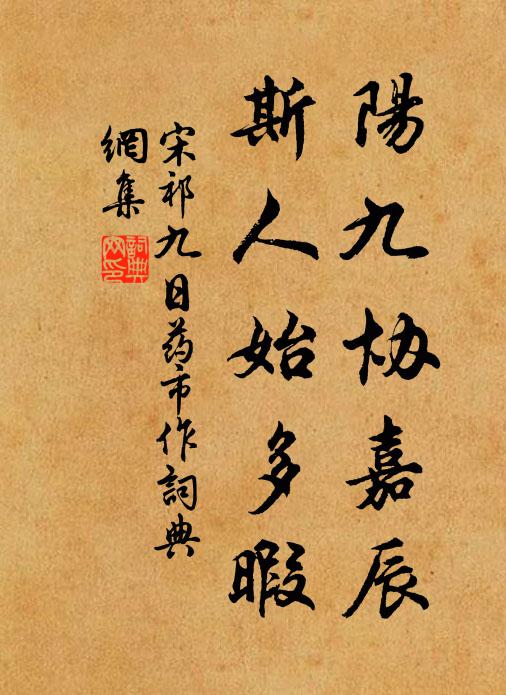 陽九协嘉辰
斯人始多暇
宋祁九日药市作詞典
網集
詞典
网印